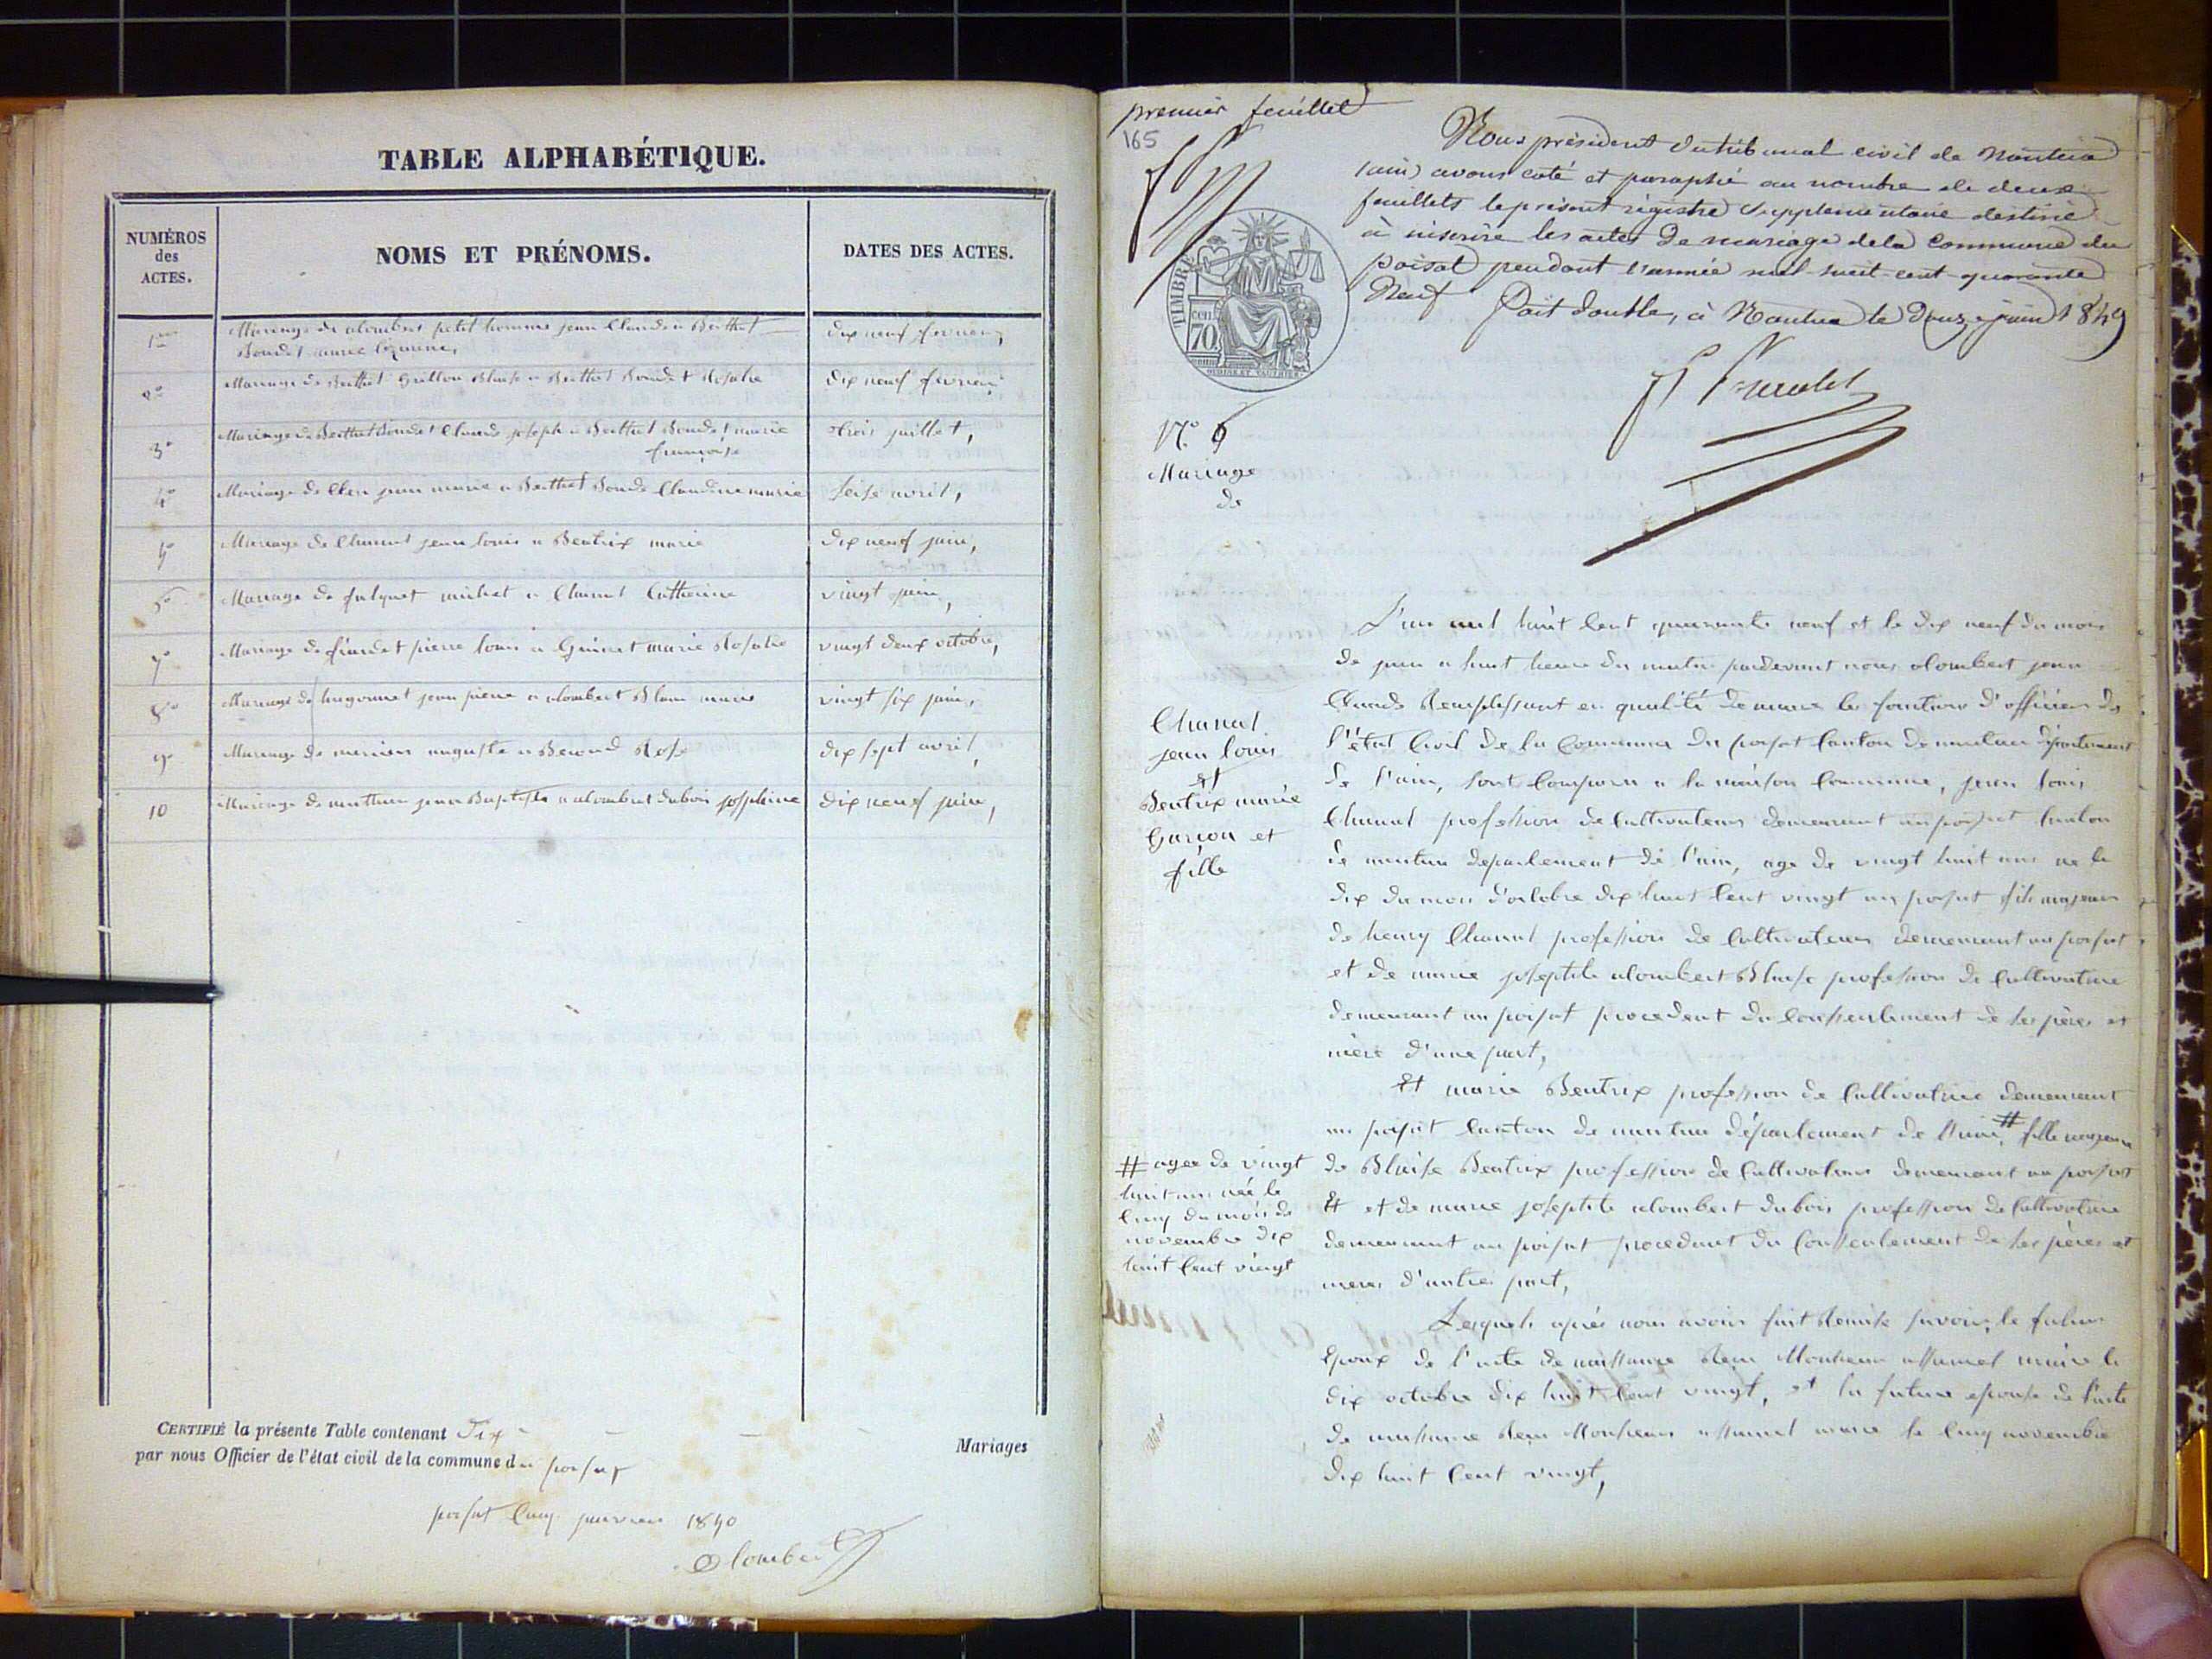 TABLE ALPHABÉTIQUE.
NUMÉROS
des
ACTES.
NOMS ET PRÉNOMS.
DATES DES ACTES.
1er
Mariage de alombert petit homme jean Claude a Berthet
Bondet marie
dix neuf fevrier,
2e
Mariage de Berthet Grillon Blaise a Berthet Bondet Rosalie
dix neuf fevrier
3e
Mariage de Berthet Bondet Claude joseph a Berthet Bondet marie
françoise
trois juillet,
4e
Mariage de jean marie a Berthet Bondet Claudine marie
seise avril,
Mariage de Chanal jean louis a Beatrix marie
dix neuf juin,
Mariage de michel a Chanal Catherine
vingt juin,
7e
Mariage de pierre louis a marie Rosalie
vingt deux octobre,
8e
Mariage de hugonnet jean pierre a alombert Blanc marie
vingt six juin,
9e
Mariage de mermier auguste a Beroud Rose
dix sept avril,
10
Mariage de jean Baptiste a alombert dubois josephine
dix neuf juin,
CERTIFIÉ la présente Table contenant Dix
Mariages
par nous Officier de l'état civil de la commune du poisat
poisat Cinq janvier 1850
Alombert
premier feuillet
165
Nous président du tribunal civil de Nantua
(ain) avons coté et paraphé au nombre de deux
feuillets le présent régistre supplementaire destiné
à inscrire les actes de mariage de la commune du
poisat pendant l'année mil-huit-cent-quarante
Neuf Fait double, à Nantua le douze juin 1849
TIMBRE
70
N.º
Mariage
de
Chanal
jean louis
et
Beatrix marie
Garçon et
fille
L'an mil huit Cent quarante neuf et le dix neuf du mois
de juin a huit heure du matin pardevant nous alombert jean
Claude Remplissant en qualité de maire les fonctions d'officier de
l'état Civil de la Commune du poisat Canton de nantua département
de l'ain, sont Comparu a la maison Commune, jean louis
Chanal profession de Cultivateur demeurant au poisat Canton
de nantua departement de l'ain, age de vingt huit ans né le
dix du mois d'octobre dix huit Cent vingt au poisat fils majeur
de henry Chanal profession de Cultivateur demeurant au poisat
et de marie josephte alombert Blaise profession de Cultivatrice
demeurant au poisat procedent du Consentement de ses pères et
mère d'une part,
Et marie Beatrix profession de Cultivatrice demeurant
au poisat Canton de nantua département de l'ain, # fille majeure
de Blaise Beatrix profession de Cultivateur demeurant au poisat
et de marie josephte alombert dubois profession de Cultivatrice
demeurant au poisat procedant du Consentement de ses pères et
meres d'autre part,
# agee de vingt
huit ans née le
Cinq du mois de
novembre dix
huit Cent vingt
Lesquels après nous avoir fait Remise savoir, le futur
Epoux de l'acte de naissance Reçu Monsieur maire le
dix octobre dix huit Cent vingt, et la future epouse de l'acte
de naissance Reçu Monsieur maire le Cinq novembre
dix huit Cent vingt,